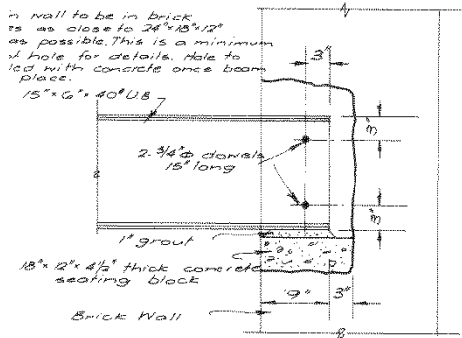 wall to be in brick
as close to 24"×18"×12"
as possible. This is a minimum
hole for details. Hole to
with concrete once beam
place.
15"×6"×40# U.B
3"
3"
2. 3/4"φ dowels
15" long
3"
1" grout
18"×12"×4½" thick concrete
seating block
9" 3"
Brick Wall